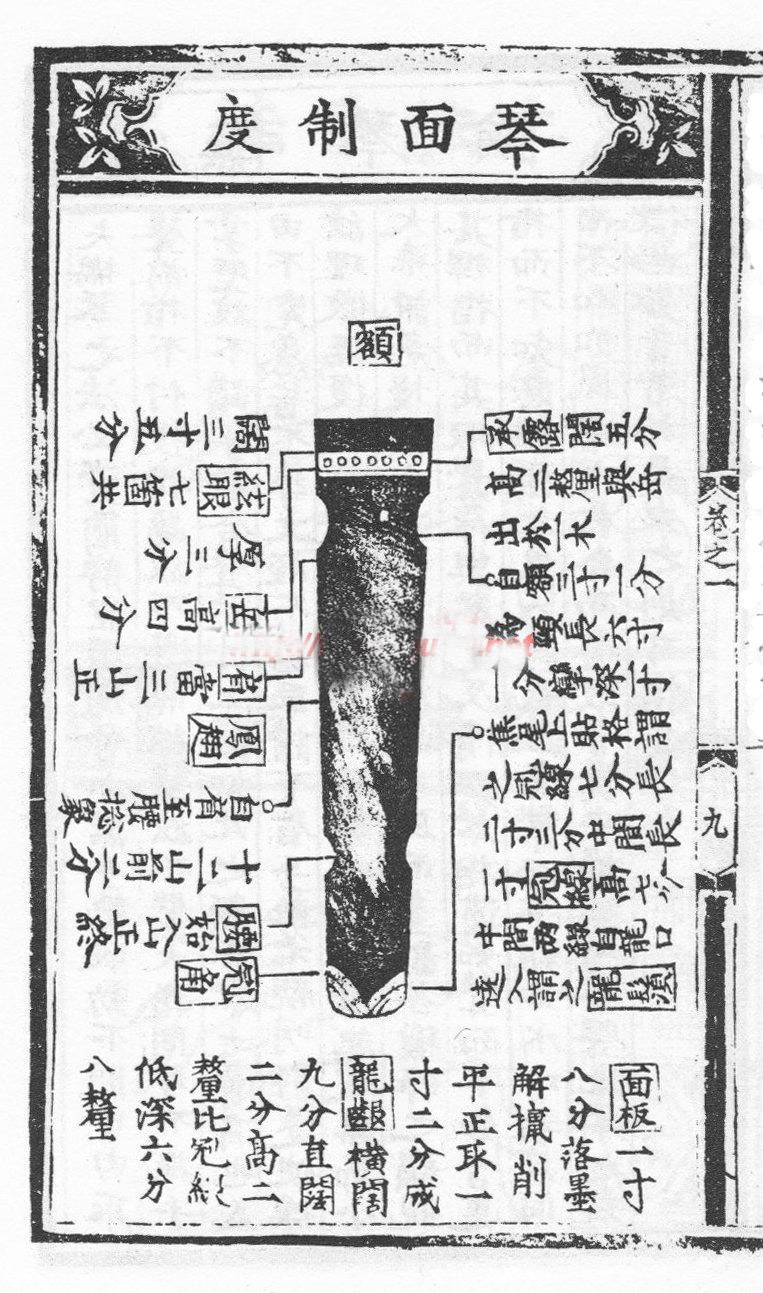 琴面制度
額
承露闊五分
高二釐與岳
出於一木
自額三寸一分
為頸長六寸
一分彎深一寸
焦尾上貼格謂
之冠線七分長
二寸三分中間長
一寸冠線高七分
中間兩綴自龍口
遶入謂之龍鬚
闊三寸五分
絃眼七箇共
厚三分
岳高四分
肩當三山正
鳳翅
自肩至腰揔象
十二山前二分
腰如入山正終
冠角
面板一寸
八分落墨
解攛削
平正取一
寸二分成
龍齦橫闊
九分直闊
二分高二
釐比冠線
低深六分
八釐
卷之一
九